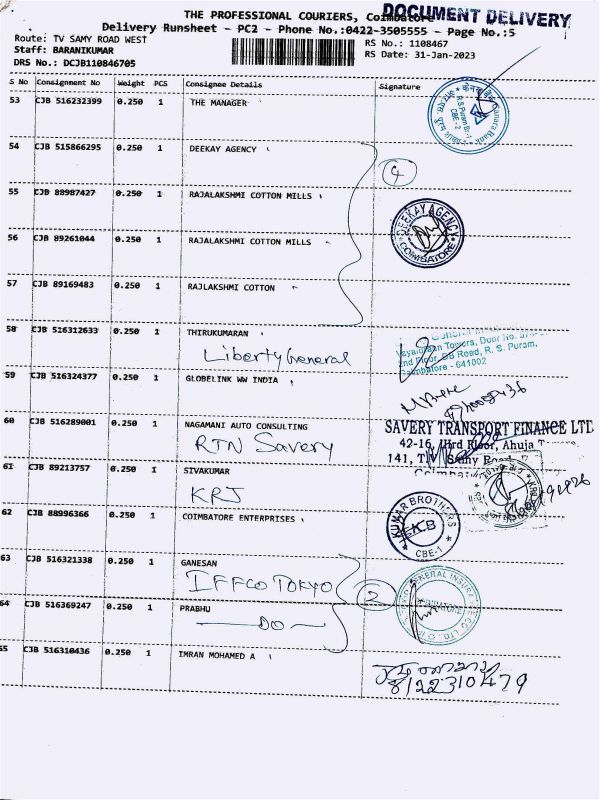 THE PROFESSIONAL COURIERS, Coimbatore
DOCUMENT DELIVERY
Delivery Runsheet - PC2 - Phone No.:0422-3505555 - Page No.:5
Route: TV SAMY ROAD WEST
RS No.: 1108467
Staff: BARANIKUMAR
RS Date: 31-Jan-2023
DRS No.: DCJB110846705
S No Consignment No Weight PCS Consignee Details Signature
53 CJB 516232399 0.250 1 THE MANAGER
Canara Bank
R.S.Puram Br.
CBE-2
54 CJB 515866295 0.250 1 DEEKAY AGENCY
4
55 CJB 88987427 0.250 1 RAJALAKSHMI COTTON MILLS
DEEKAY AGENCY
COIMBATORE
56 CJB 89261044 0.250 1 RAJALAKSHMI COTTON MILLS
57 CJB 89169483 0.250 1 RAJLAKSHMI COTTON
58 CJB 516312633 0.250 1 THIRUKUMARAN
Liberty General
Towers, Door No.
2nd Floor, DB Road, R. S. Puram,
Coimbatore - 641002
59 CJB 516324377 0.250 1 GLOBELINK WW INDIA
60 CJB 516289001 0.250 1 NAGAMANI AUTO CONSULTING
RTN Savery
SAVERY TRANSPORT FINANCE LTD
42-16, IIIrd Floor, Ahuja
141, T.V. Samy Road
61 CJB 89213757 0.250 1 SIVAKUMAR
KRJ
62 CJB 88996366 0.250 1 COIMBATORE ENTERPRISES
KUMAR BROTHERS
K.B
CBE-1
63 CJB 516321338 0.250 1 GANESAN
IFFCO TOKYO
2
64 CJB 516369247 0.250 1 PRABHU
DO
55 CJB 516310436 0.250 1 IMRAN MOHAMED A
8122310479